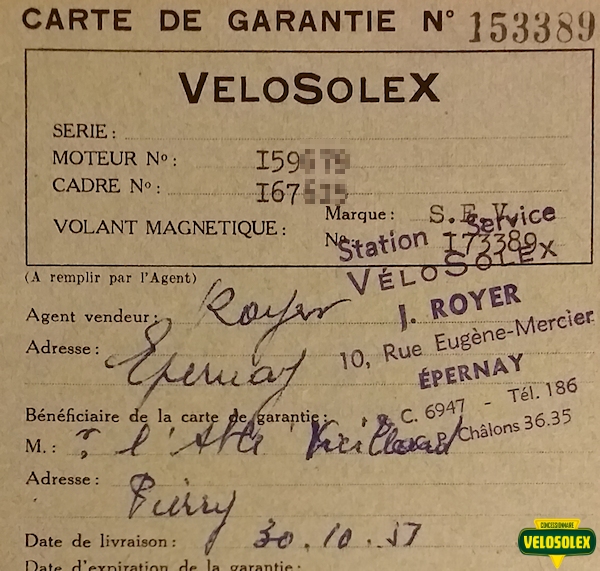 CARTE DE GARANTIE N° 153389
VELOSOLEX
SERIE :
MOTEUR No : I59
CADRE No : I67
VOLANT MAGNETIQUE : Marque : S.E.V.
No I73389
Station Service
VÉLOSOLEX
J. ROYER
10, Rue Eugène-Mercier
ÉPERNAY
C. 6947 - Tél. 186
P. Châlons 36.35
(A remplir par l'Agent)
Agent vendeur : Royer
Adresse : Epernay
Bénéficiaire de la carte de garantie :
M. : l'Abbé
Adresse : Pierry
Date de livraison : 30.10.57
Date d'expiration de la garantie :
CONCESSIONNAIRE
VELOSOLEX